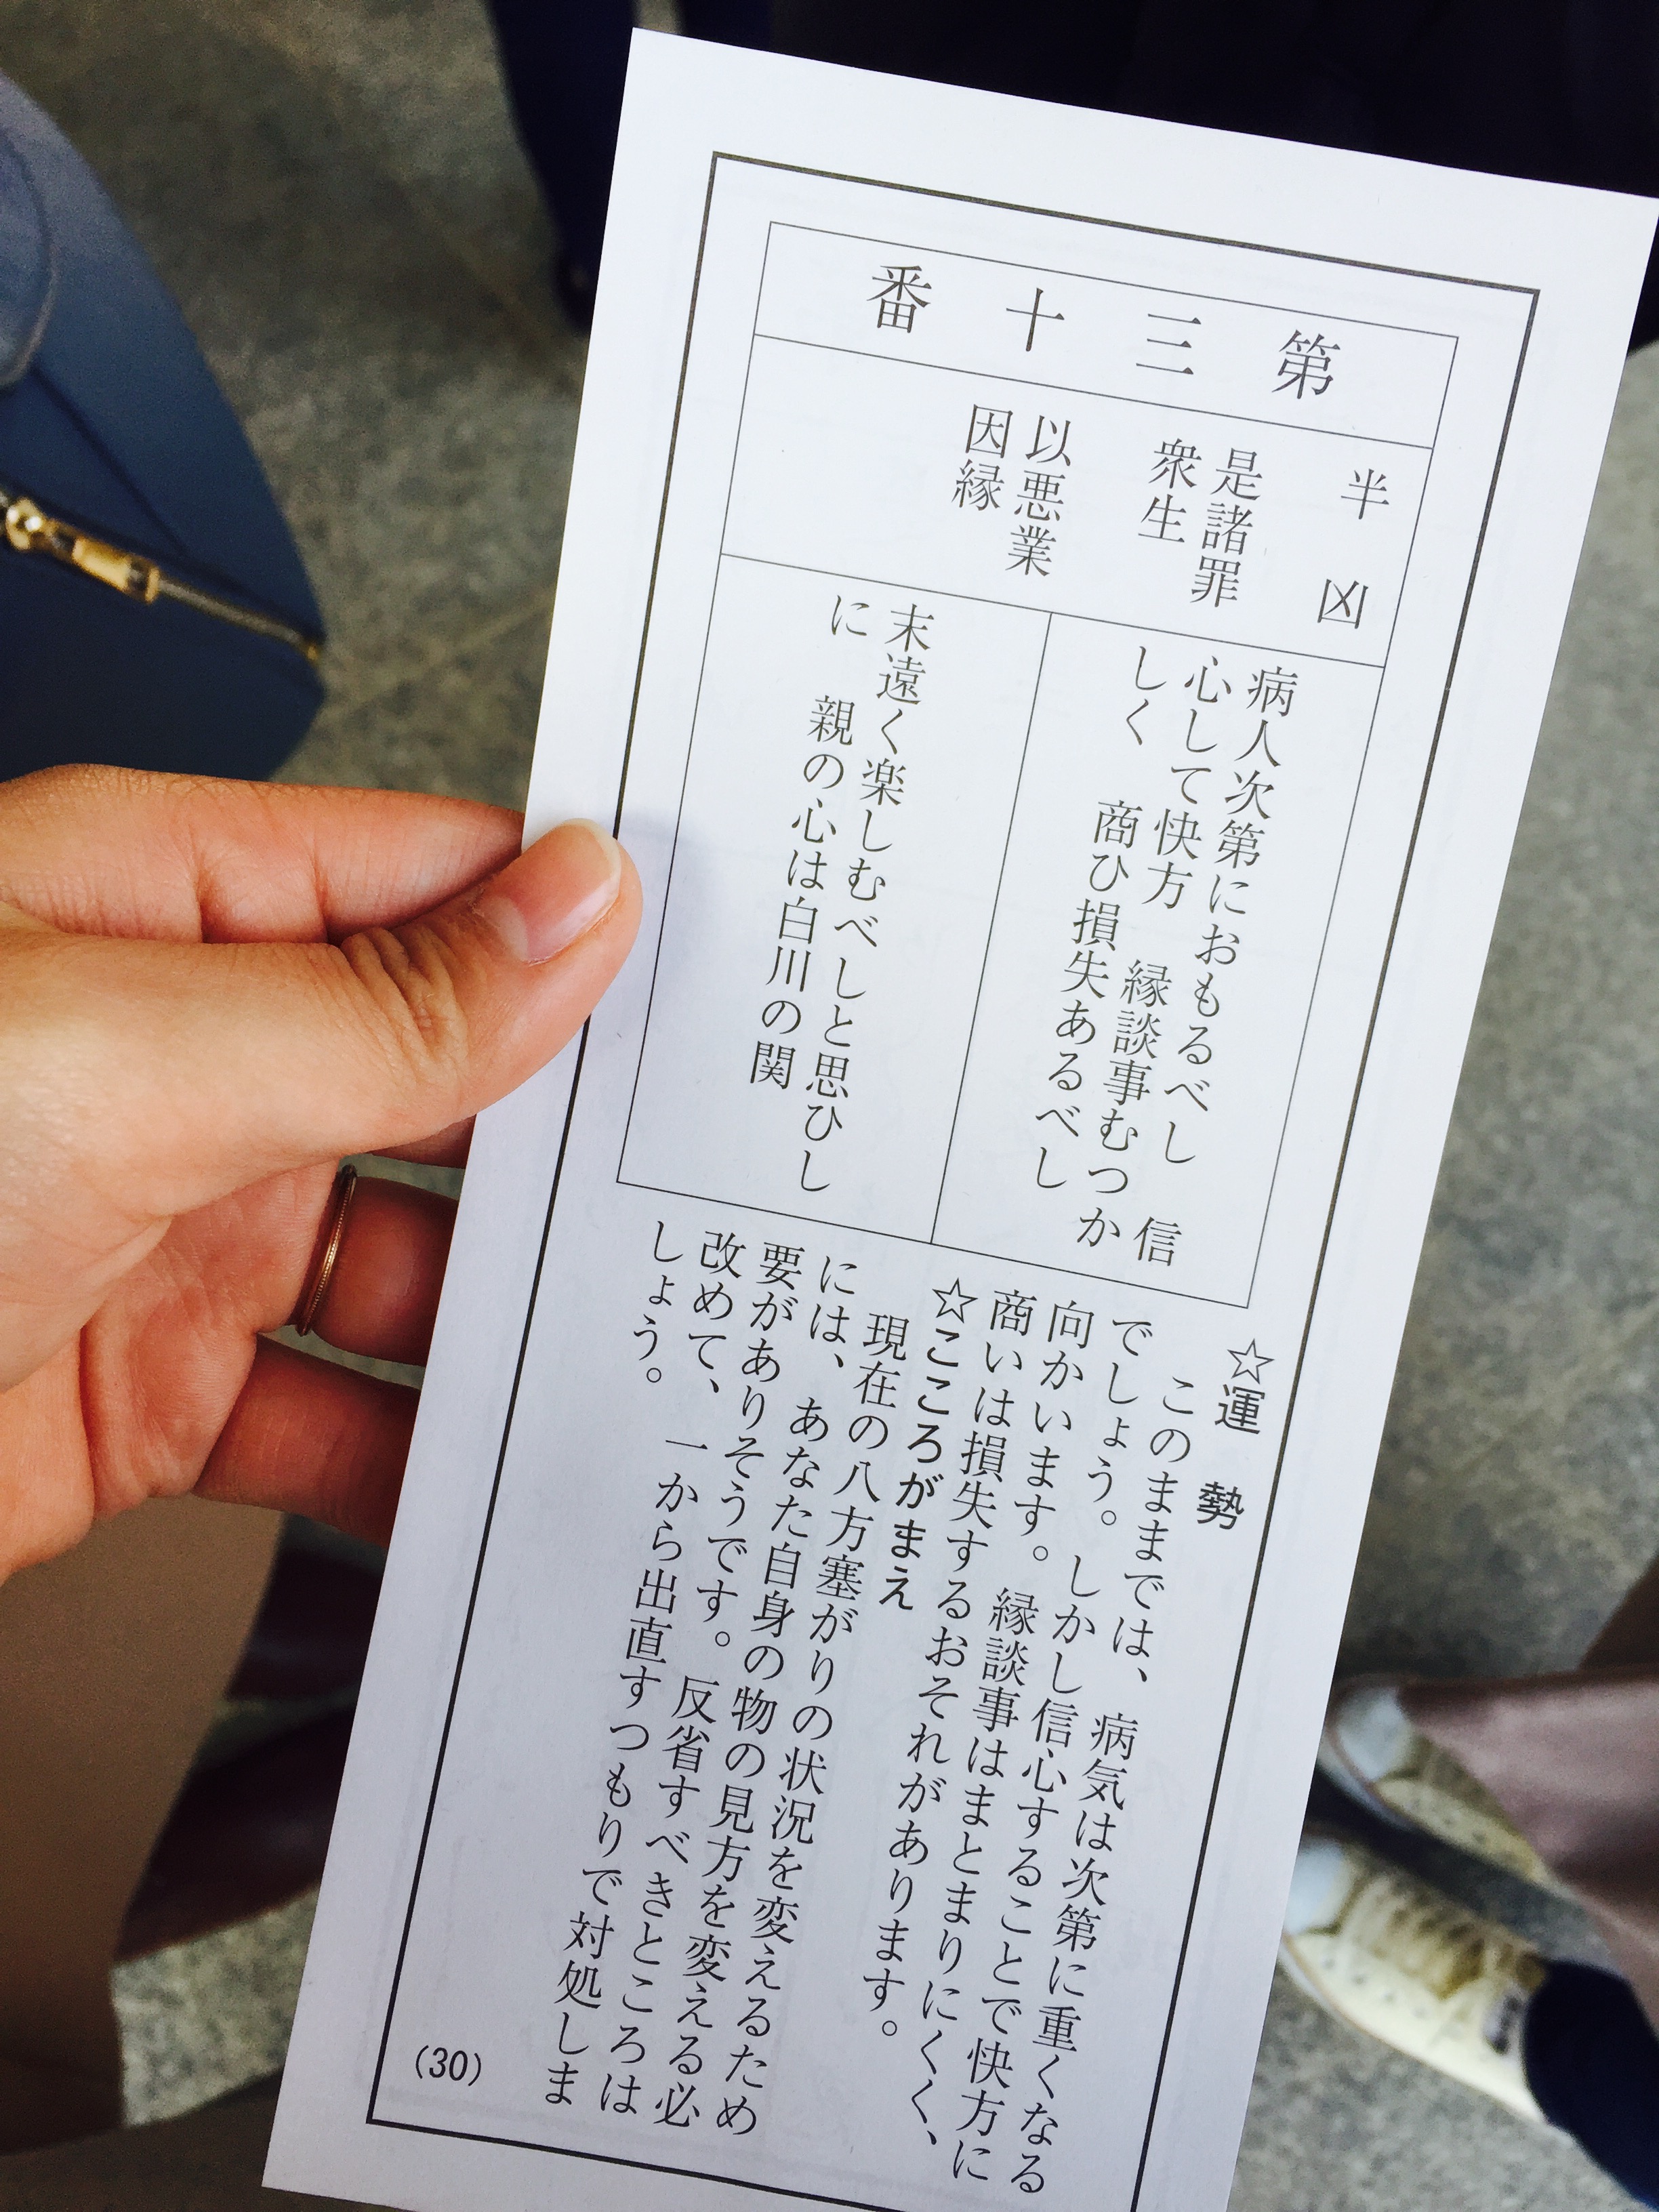 第三十番
半凶
是諸罪
衆生
以悪業
因縁
病人次第におもるべし　信
心して快方　縁談事むつか
しく　商ひ損失あるべし
末遠く楽しむべしと思ひし
に　親の心は白川の関
☆運　勢
このままでは、病気は次第に重くなる
でしょう。しかし信心することで快方に
向かいます。縁談事はまとまりにくく、
商いは損失するおそれがあります。
☆こころがまえ
現在の八方塞がりの状況を変えるため
には、あなた自身の物の見方を変える必
要がありそうです。反省すべきところは
改めて、一から出直すつもりで対処しま
しょう。
(30)